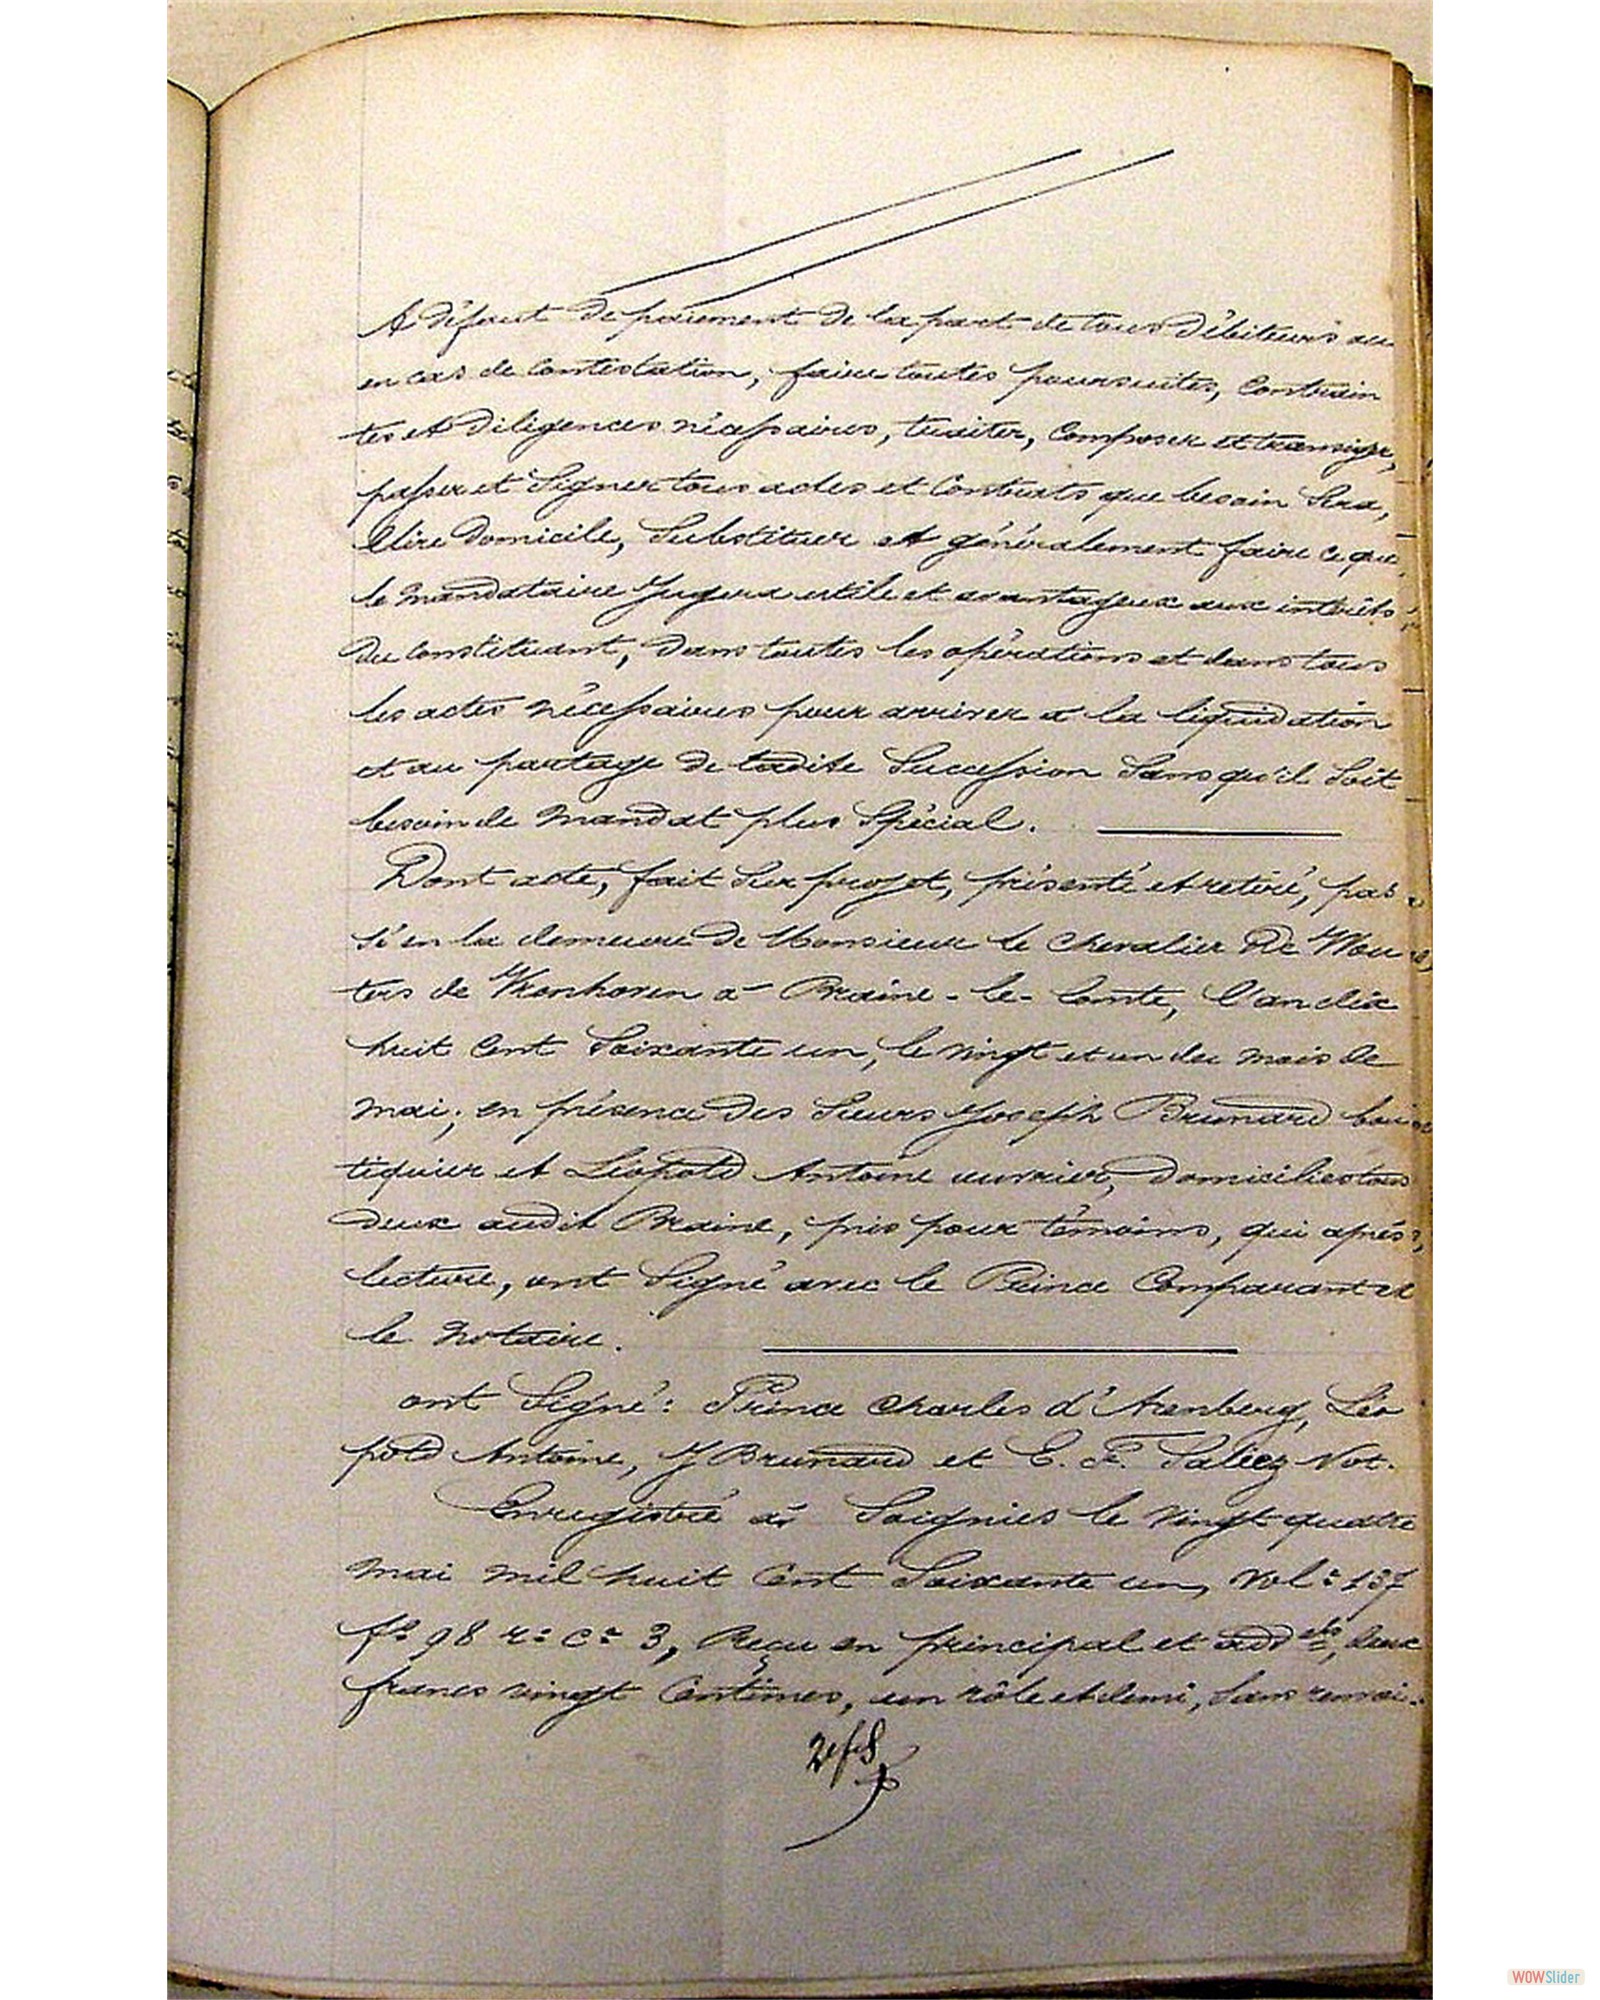 A défaut de paiement de la part de tous débiteurs ou
en cas de Contestation, faire toutes poursuites, Contrain
tes et Diligences nécessaires, traiter, Composer et transiger,
passer et Signer tous actes et Contrats que besoin Sera,
Elire Domicile, Substituer et généralement faire ce que
le Mandataire Jugera utile et avantageux aux intérêts
Du Constituant, Dans toutes les opérations et dans tous
les actes nécessaires pour arriver à la liquidation
et au partage de ladite Succession Sans qu'il Soit
besoin de Mandat plus Spécial.
Dont acte, fait Sur projet, présenté et retiré, pas
sé en la demeure de Monsieur le Chevalier De Wou
ters de à Braine-le-Comte, l'an dix
huit Cent Soixante un, le vingt et un du mois de
mai, en présence des Sieurs Joseph Brunard bou
tiquier et Léopold Antoine ouvrier, Domiciliés tous
Deux audit Braine, pris pour témoins, qui après
lecture, ont Signé avec le Prince Comparant et
le Notaire.
ont Signé: Prince Charles d'Arenberg, Léo
pold Antoine, J Brunard et E. F. Not.
Enregistré à Soignies le vingt quatre
mai mil huit Cent Soixante un, vol: 137
f° 98 r° c° 3, Reçu en principal et add els, deux
francs vingt Centimes, un rôle et demi, Sans renvoi.